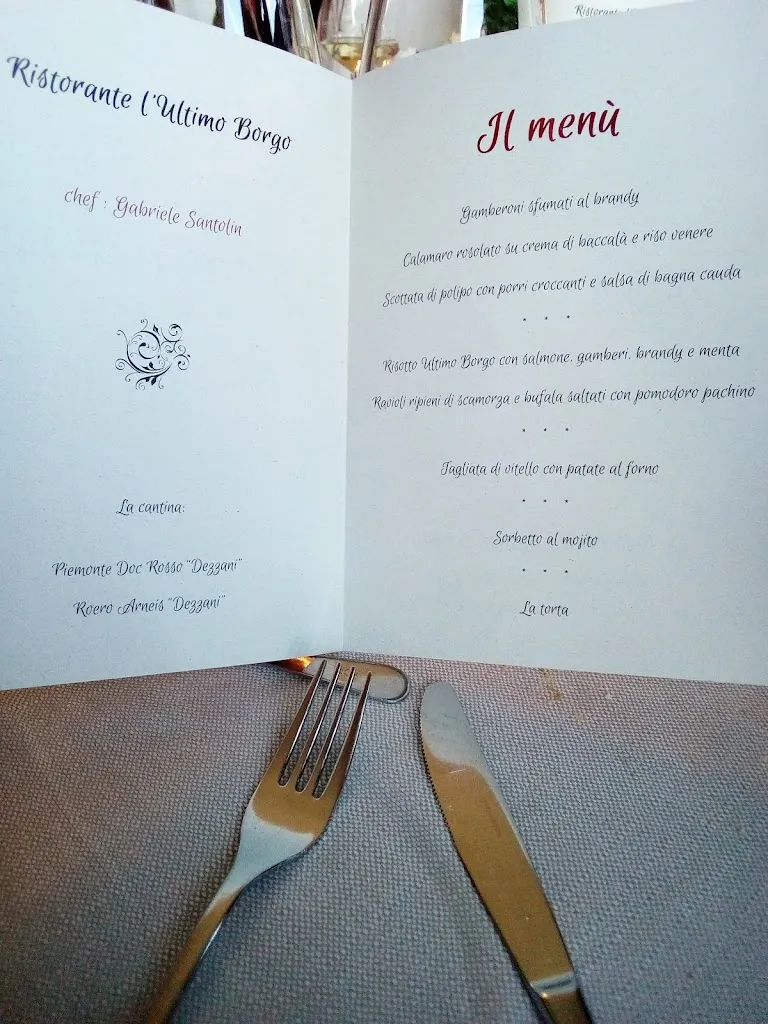 Ristorante l'Ultimo Borgo
chef : Gabriele Santolin
La cantina:
Piemonte Doc Rosso "Dezzani"
Roero Arneis "Dezzani"
Il menù
Gamberoni sfumati al brandy
Calamaro rosolato su crema di baccalà e riso venere
Scottata di polipo con porri croccanti e salsa di bagna cauda
. . .
Risotto Ultimo Borgo con salmone, gamberi, brandy e menta
Ravioli ripieni di scamorza e bufala saltati con pomodoro pachino
. . .
Tagliata di vitello con patate al forno
. . .
Sorbetto al mojito
. . .
La torta